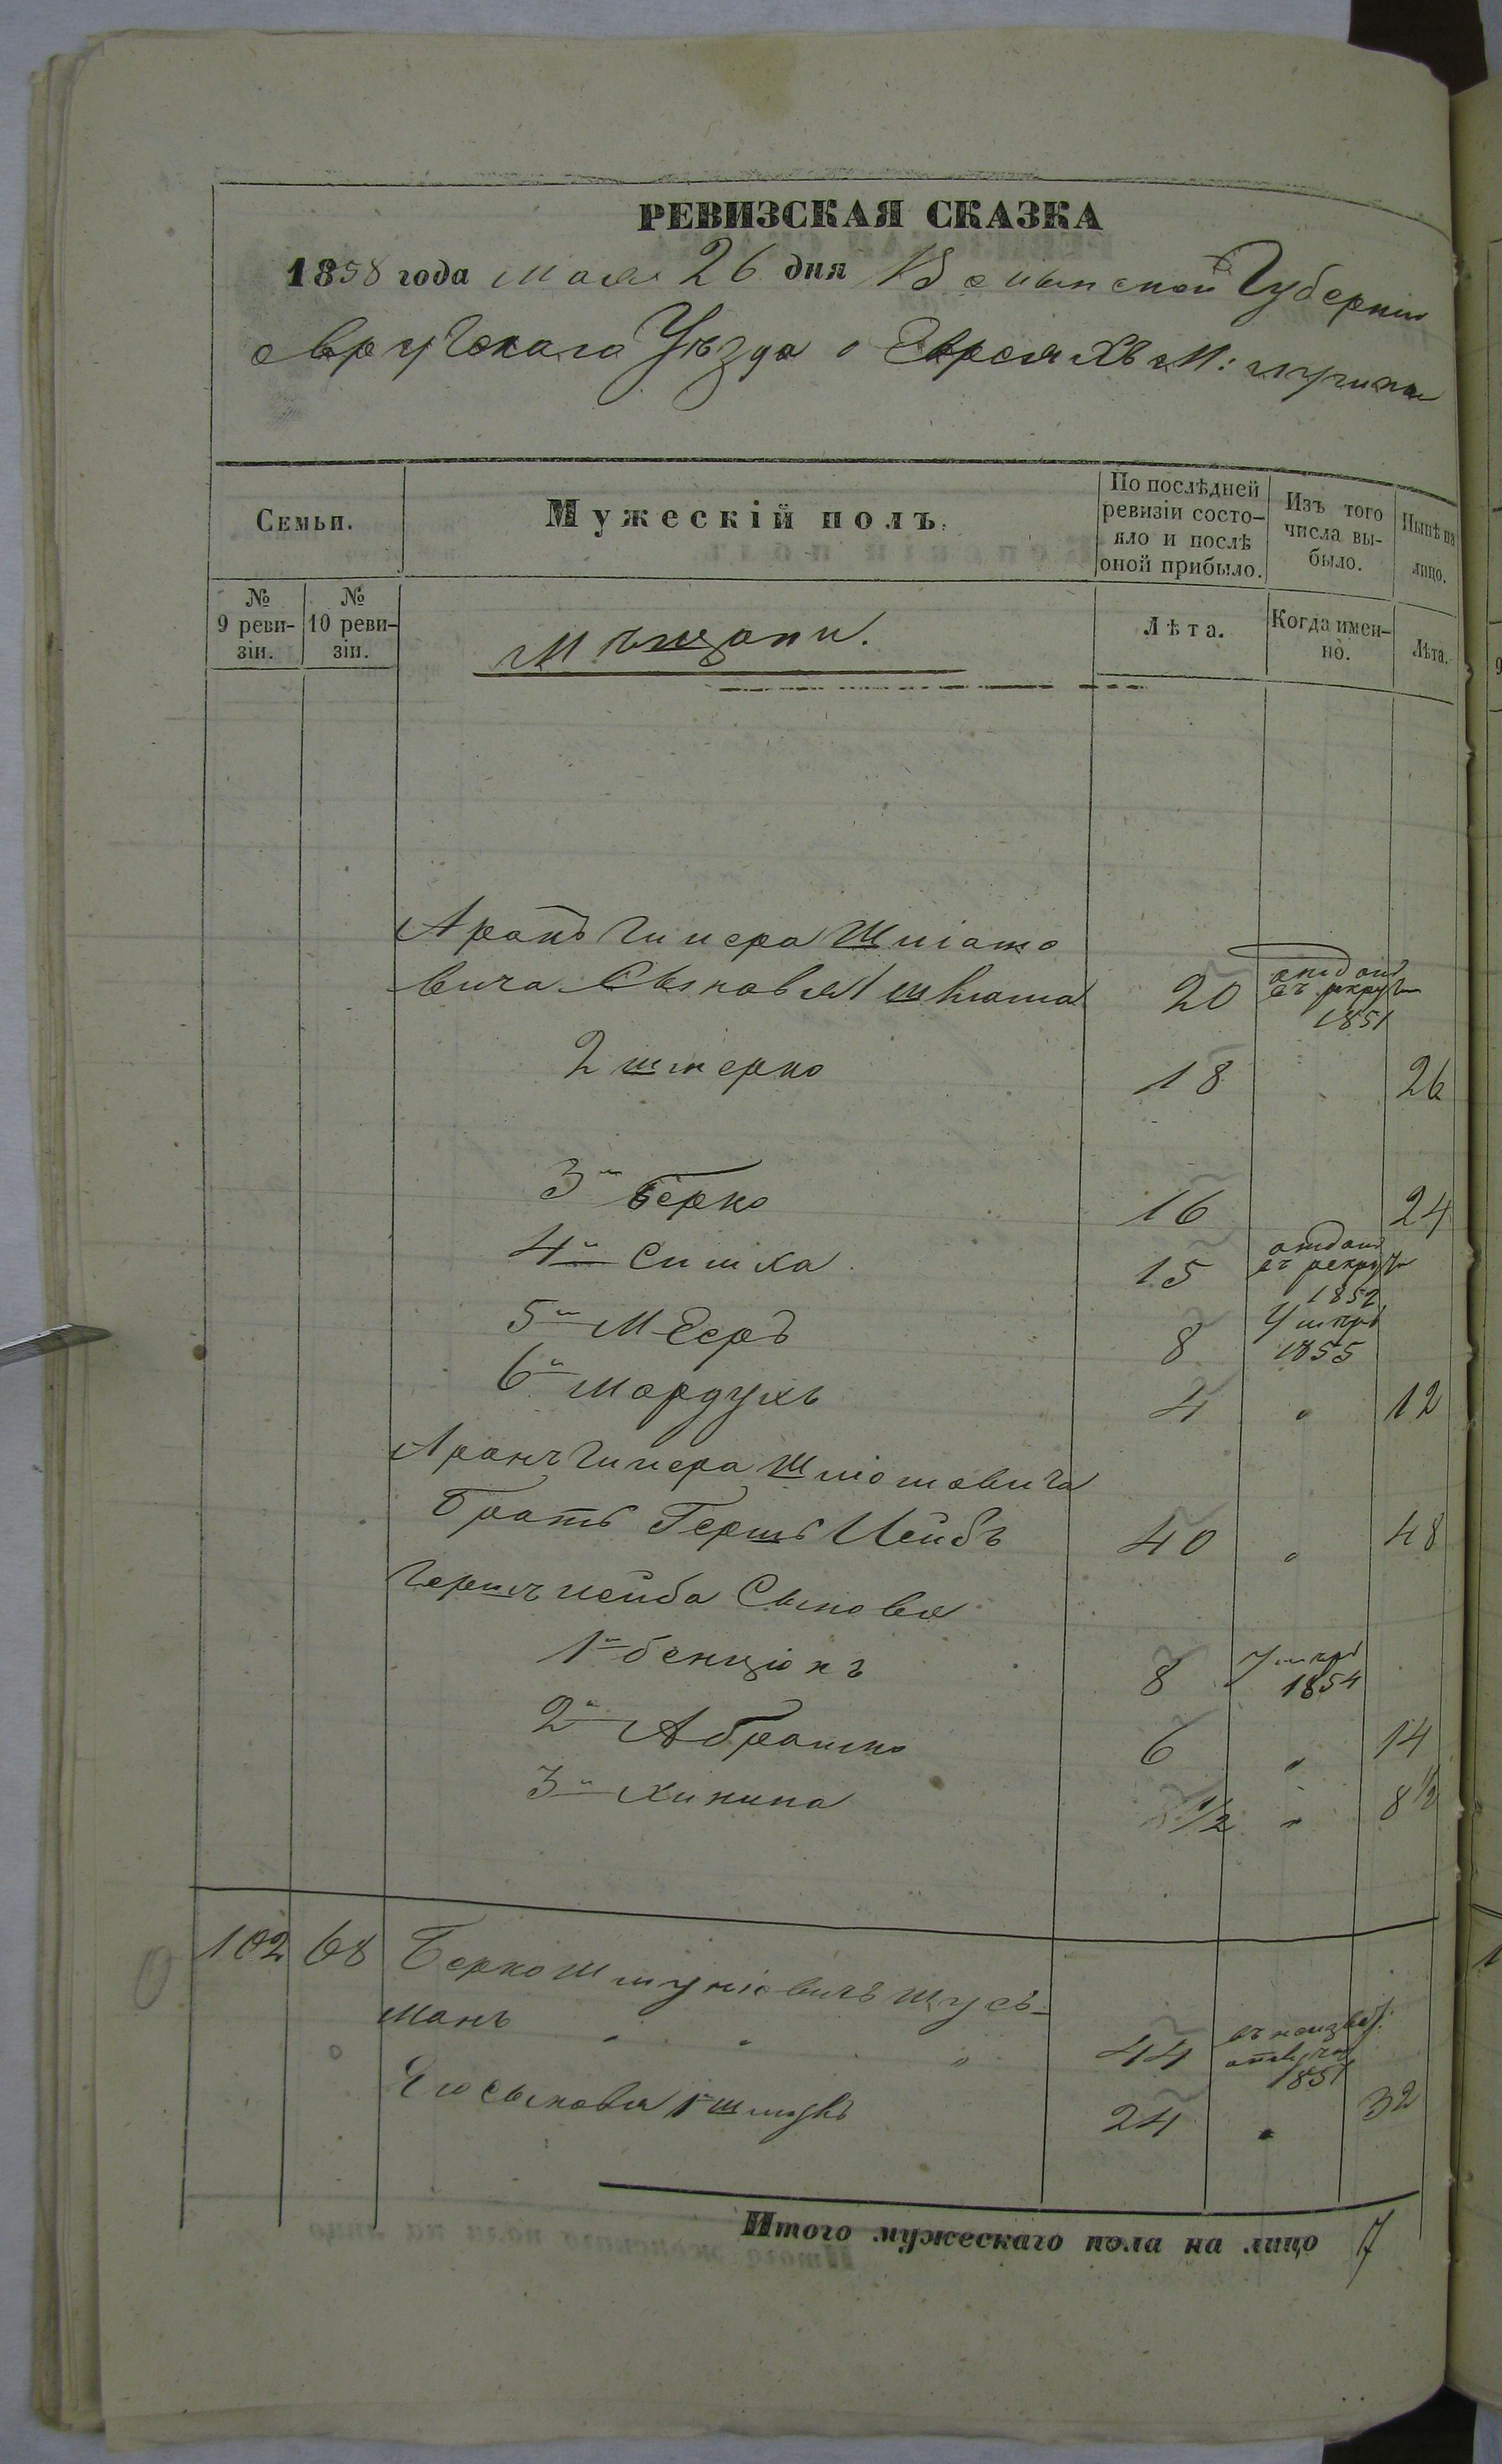 РЕВИЗСКАЯ СКАЗКА
1858 года мая 26 дня Волынской Губернии
овручскаго Уѣзда о Евреяхъ М: лугинъ
Семьи.
Мужескій полъ.
По послѣдней ревизіи состо-
яло и послѣ оной прибыло.
Изъ того числа вы-
было.
Нынѣ на лицо.
№ 9 реви-
зіи.
№ 10 реви-
зіи.
Мѣщани.
Лѣта.
Когда имен-
но.
Лѣта.
Аронъ Гимера Шліомо
вича Сыновья 1 20 отданъ въ рекруты 1851
2 шмерко 18 26
3й Берко 16 24
4й Симха 15 отданъ въ рекруты 1852
5й Мееръ 8 Умеръ 1855
6й Мордухъ 4 " 12
Аронъ Гимера Шліомовича
Братъ Гершъ Лейбъ 40 " 48
Гершъ лейба Сыновья
1й бенціонъ 8 умеръ 1854
2й Абрамко 6 " 14
3й хинина 1/2 " 8 1/2
102 68 Берко Шмуліовичъ Шус-
манъ " " " 44 въ неизвѣ: отлучкѣ 1851
Его сыновья 1й шмуль 24 " 32
Итого мужескаго пола на лицо 7